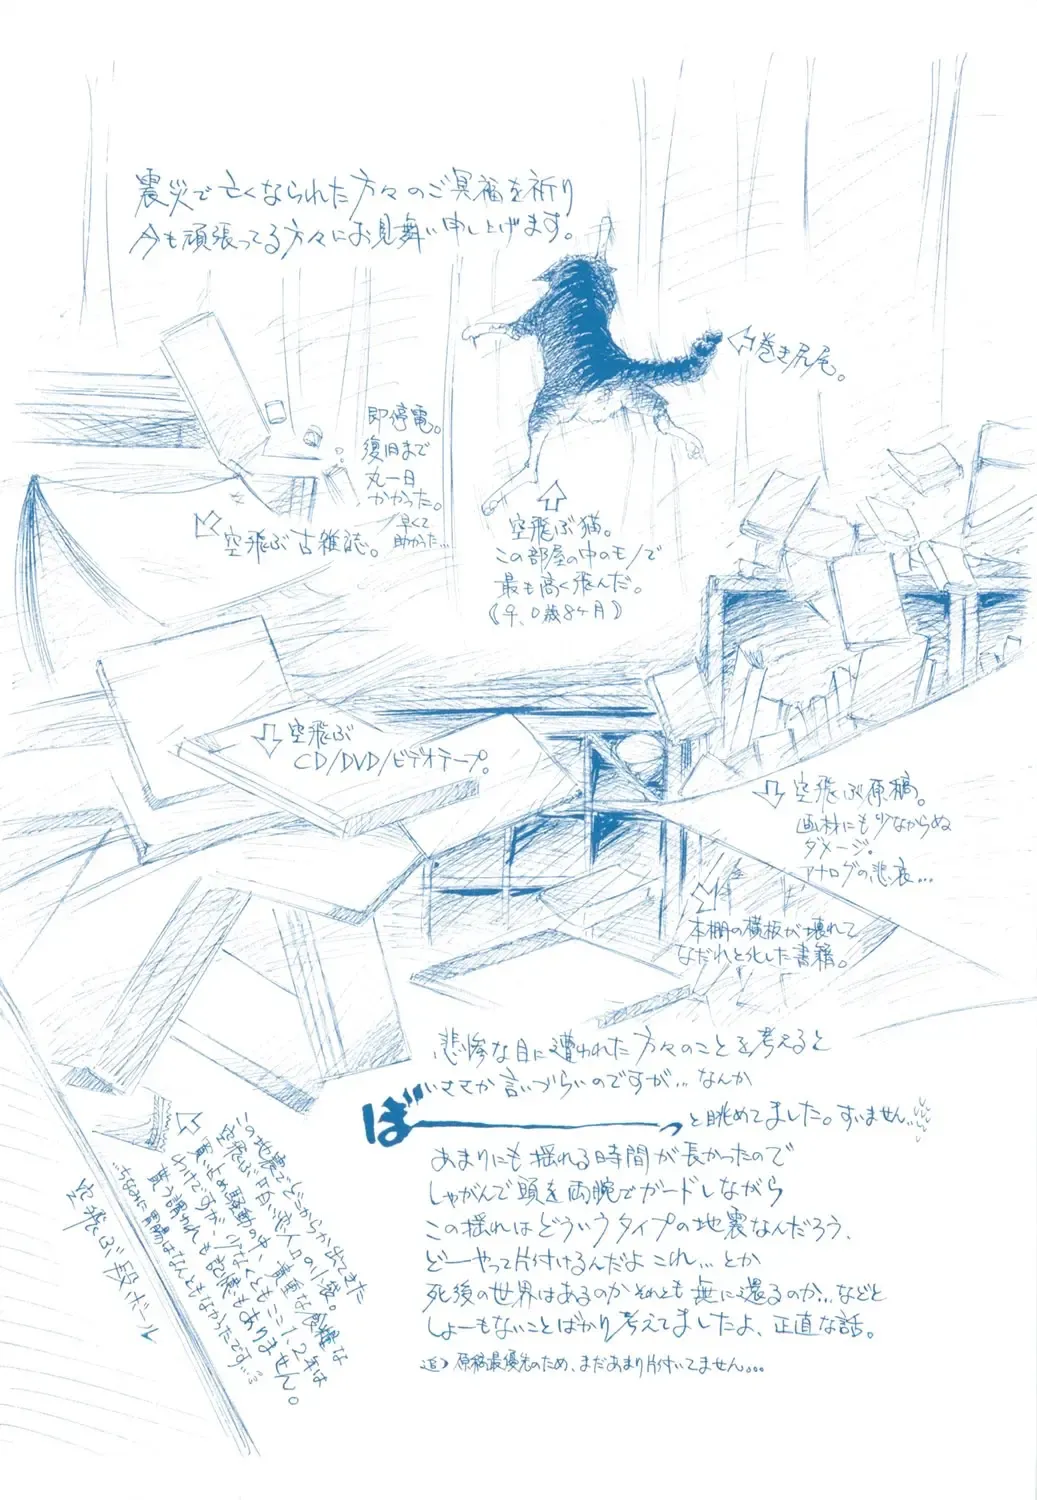 震災で亡くなられた方々のご冥福を祈り
今も頑張ってる方々にお見舞い申し上げます。
巻き尻尾。
即停電。
復旧まで
丸一日
かかった。
早くて
助かった…
空飛ぶ古雑誌。
空飛ぶ猫。
この部屋の中のモノで
最も高く飛んだ。
《♀、0歳8ヶ月》
空飛ぶ
CD/DVD/ビデオテープ。
空飛ぶ原稿。
画材にも少なからぬ
ダメージ。
アナログの悲哀…
本棚の横板が壊れて
なだれと化した書籍。
悲惨な目に遭われた方々のことを考えると
いささか言いづらいのですが…なんか
ばーーーーっと眺めてました。すいません…
あまりにも揺れる時間が長かったので
しゃがんで頭を両腕でガードしながら
この揺れはどういうタイプの地震なんだろう、
どーやって片付けるんだよこれ…とか
死後の世界はあるのかそれとも無に還るのか…などと
しょーもないことばかり考えてましたよ、正直な話。
追)原稿最優先のため、まだあまり片付いてません…
この地震でどこからか出てきた
空飛ぶ白い恋人の小袋。
買い占め騒動の中、貴重な食糧な
わけですが、少なくともここ1、2年は
貰う謂われも記憶もありません。
…ちなみに胃腸はなんともなかったです…
空飛ぶ段ボール